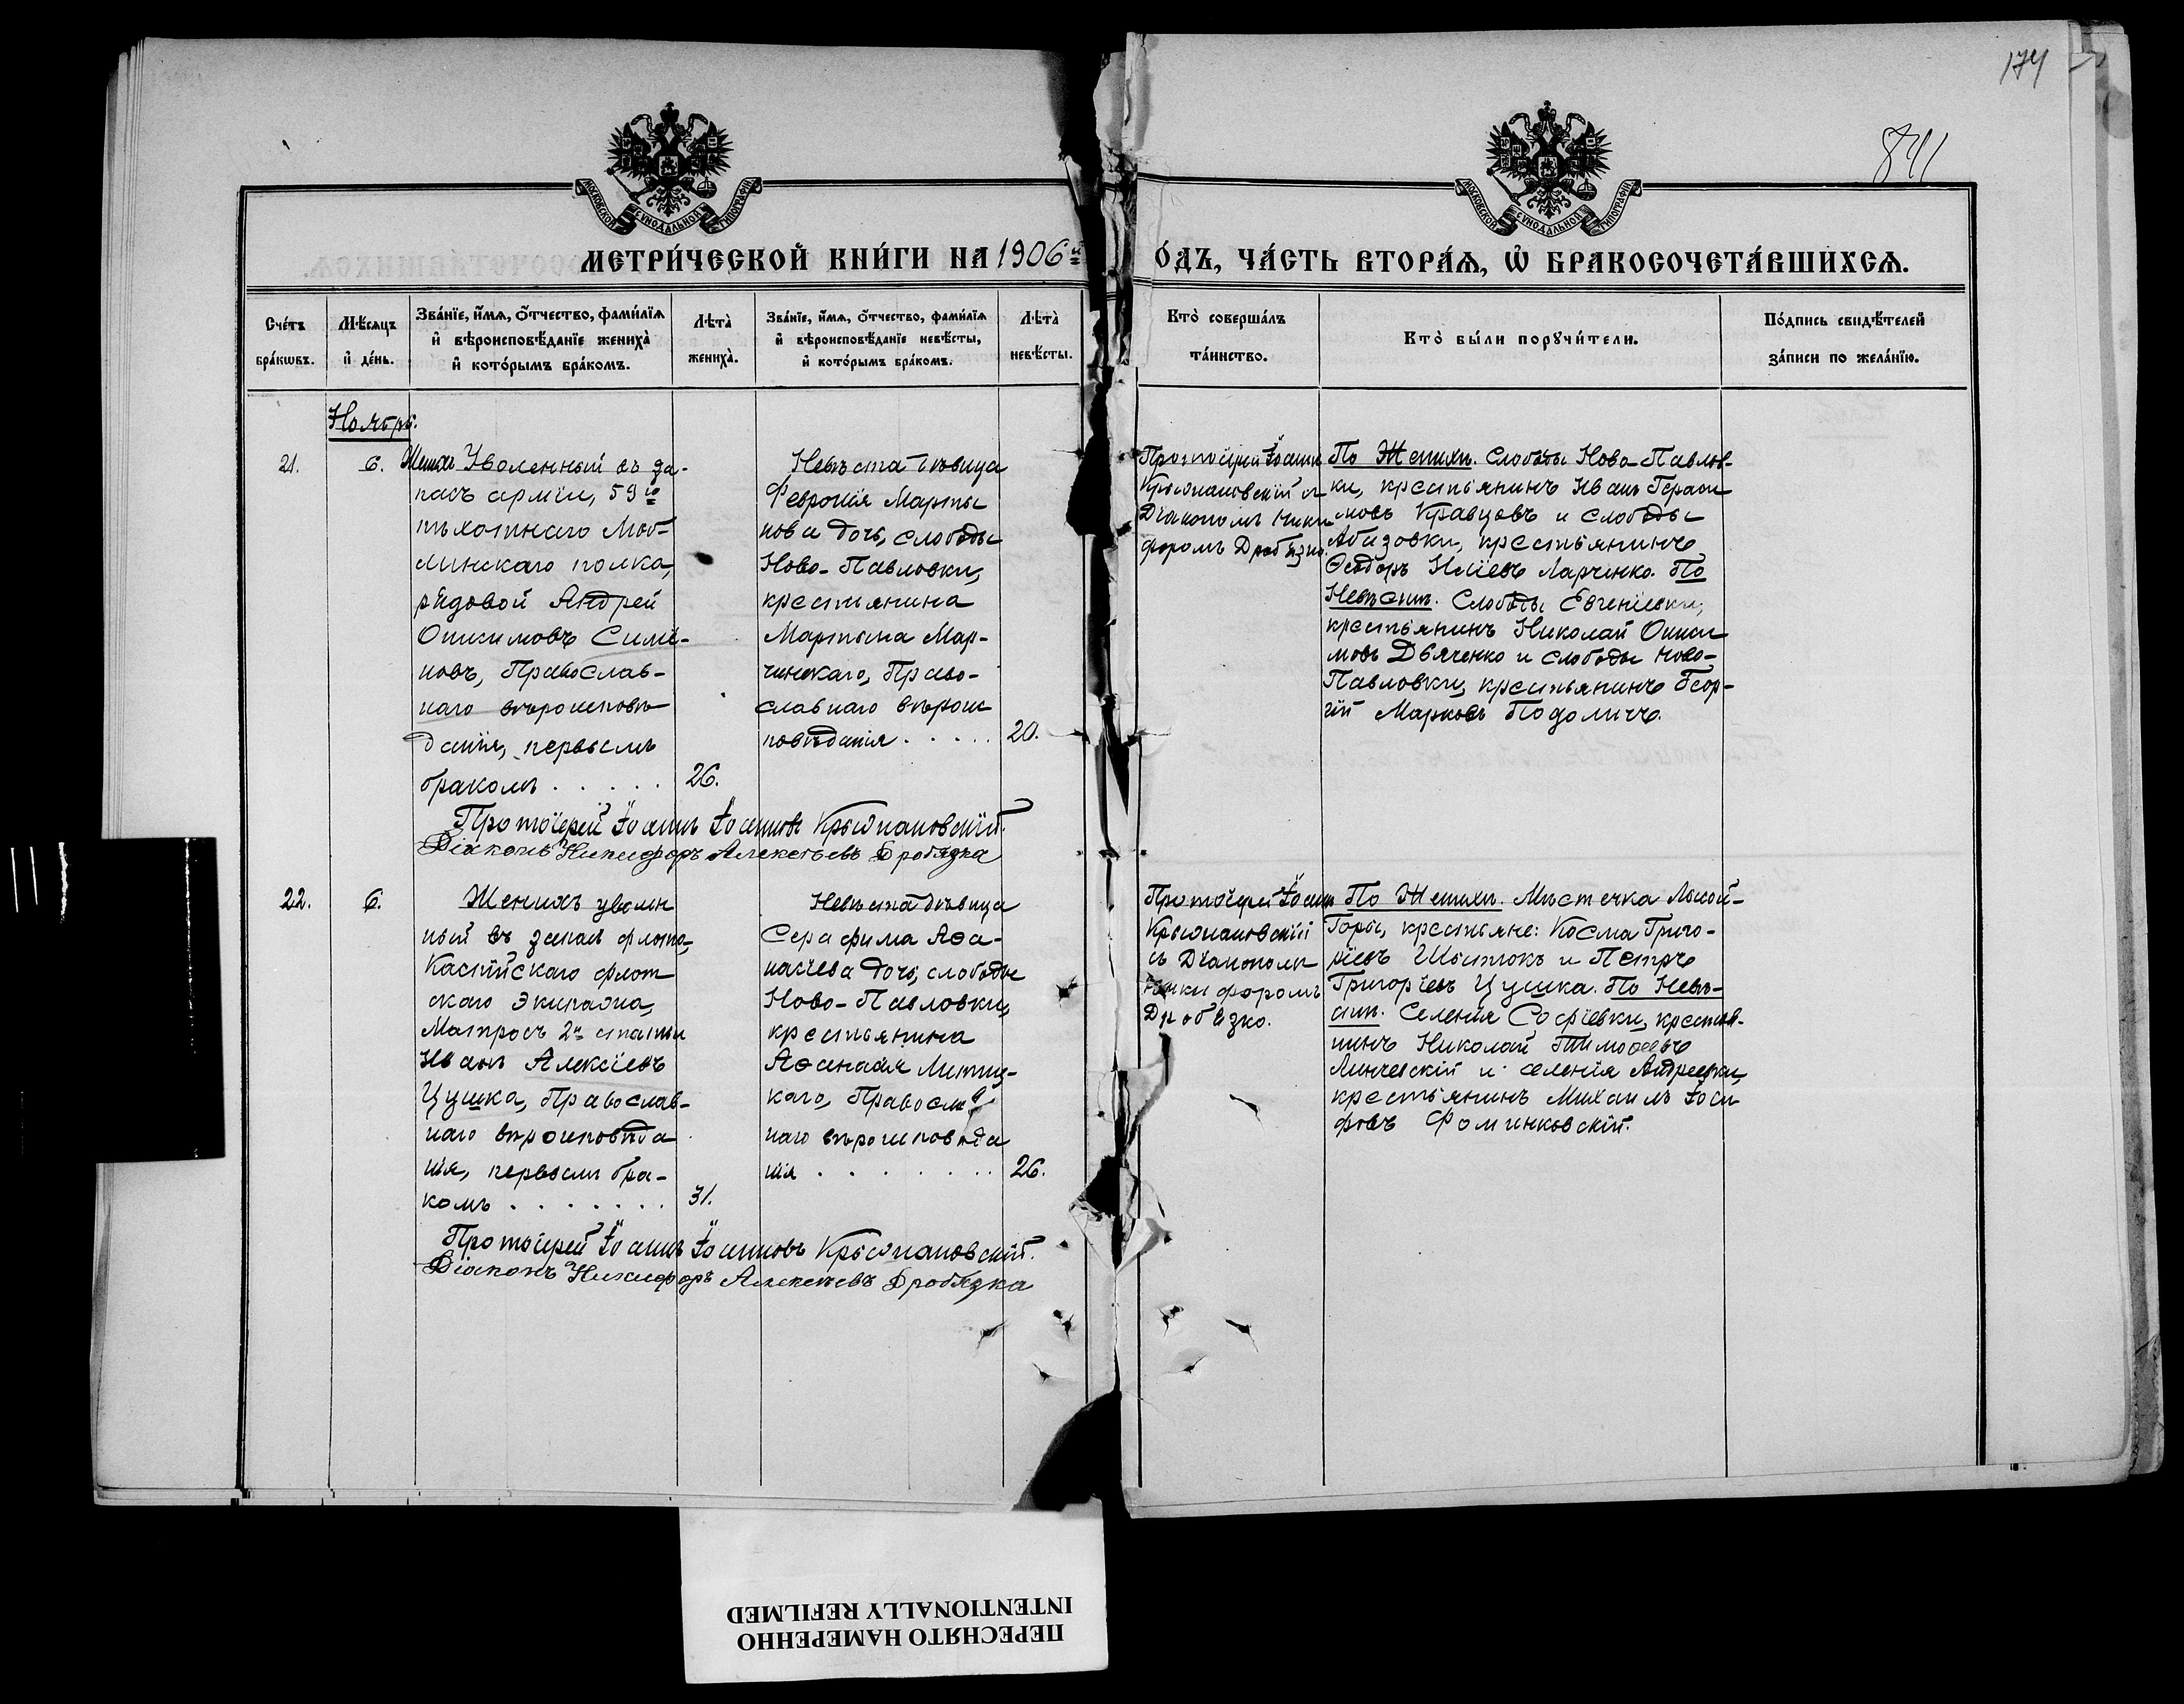 174
841
МОСКОВСКОЙ СУНОДАЛЬНОЙ ТИПОГРАФІИ
МОСКОВСКОЙ СУНОДАЛЬНОЙ ТИПОГРАФІИ
МЕТРИ́ЧЕСКОЙ КНИ́ГИ НА 1906й
ОДЪ, ЧА́СТЬ ВТОРА́Ѧ, Ѿ БРАКОСОЧЕТА́ВШИХСѦ.
Сче́тъ бра́кѡвъ.
Мѣ́сѧцъ и҆ де́нь.
Зва́нїе, и҆́мѧ, о҆́тчество, фами́лїѧ и҆ вѣроисповѣ́данїе жениха̀ и҆ кото́рымъ бра́комъ.
Лѣта̀ жениха̀.
Зва́нїе, и҆́мѧ, о҆́тчество, фами́лїѧ и҆ вѣроисповѣ́данїе невѣ́сты, и҆ кото́рымъ бра́комъ.
Лѣта̀ невѣ́сты.
Кто̀ соверша́лъ та́инство.
Кто̀ бы́ли порꙋчи́тели.
По́дпись свидѣ́телей за́писи по жела́нїю.
Ноябрь.
21.
6.
Женихъ Уволенный въ за-
пасъ арміи, 59го
пѣхотнаго Люб-
линскаго полка,
рядовой Андрей
Онисимовъ Симо-
новъ, Православ-
наго вѣроисповѣ
данія, первымъ
бракомъ . . . . .
26.
Невѣста дѣвица
Февронія Марты
нова дочь, слободы
Ново-Павловки,
крестьянина
Мартына Мар-
чинскаго, Право-
славнаго вѣроис
повѣданія . . . . .
20.
Протоіерей Іоаннъ
Крыжановскій съ
Діакономъ Ники
форомъ Дробязко.
По Женихѣ. Слободы Ново-Павлов-
ки, крестьянинъ Иванъ Гераси
мовъ Кравцовъ и слободы
Абазовки, крестьянинъ
Ѳеодоръ Иліевъ Ларченко. По
Невѣстѣ. Слободы Евгеніевки,
крестьянинъ Николай Ониси
мовъ Дьяченко и слободы Ново-
Павловки, крестьянинъ Геор-
гій Марковъ Подоличъ.
Протоіерей Іоаннъ Іоанновъ Крыжановскій.
Діаконъ Никифоръ Алексѣевъ Дробязка
22.
6.
Женихъ уволен
ный въ запас флота,
Каспійскаго флот
скаго экипажа,
Матросъ 2й статьи
Иванъ Алексіевъ
Цушка, Православ-
наго вѣроисповѣда
нія, первымъ бра-
комъ . . . . . . .
31.
Невѣста дѣвица
Серафима Аѳа-
насіева дочь, слободы
Ново-Павловки,
крестьянина
Аѳанасія
каго, Православ
наго вѣроисповѣда
нія . . . . . . .
26.
Протоіерей Іоаннъ
Крыжановскій
съ Діакономъ
Никифоромъ
Дробязко.
По Женихѣ. Мѣстечка Лысой-
Горы, крестьяне: Косма Григо-
ріевъ Шыстокъ и Петръ
Григоріевъ Цушка. По Невѣ-
стѣ. Селенія Софіевки, крестья-
нинъ Николай Тимоѳеевъ
Линчевскій и селенія Андреевки,
крестьянинъ Михаилъ Іоси
фовъ Фоминковскій.
Протоіерей Іоаннъ Іоанновъ Крыжановскій.
Діаконъ Никифоръ Алексѣевъ Дробязка
ПЕРЕСНЯТО НАМЕРЕННО
INTENTIONALLY REFILMED